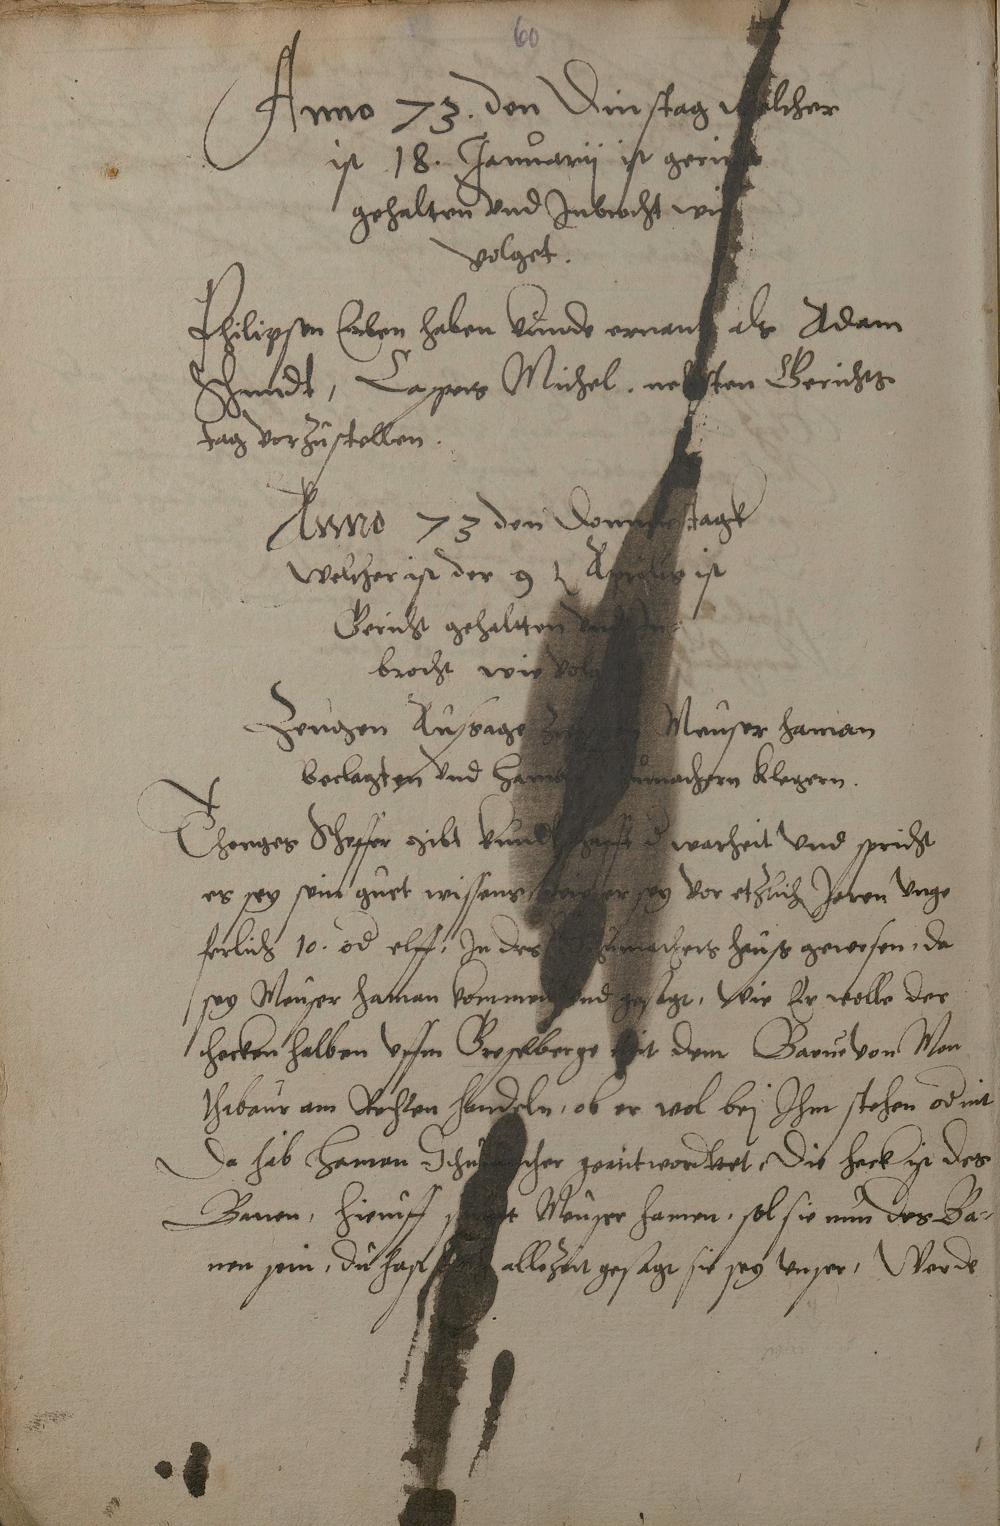 60
Anno 73. den Dinstag welcher
ist 18. Januarij ist gericht
gehalten vnd Inbrocht wie
volget.
Philipsen Erben haben kunde ernant als Adam
Schmidt, Caspers Michel. nehsten Gerichts
tag vorzustellen.
Anno 73 den Donnerstagk
welcher ist der 9 Aprilis ist
Gericht gehaltten vnd In
brocht wie volg
Zeugen Aussage Meuser haman
beclagten vnd haman machern Klegern.
Thonges Scheffer gibt kundtschafft d warheit vnd spricht
es sey sein guet wissens, wie er sey vor etzlich Jaren vnge
ferlich 10. od elff, In des Schumachers hauß gewesen, da
sey Meuser haman kommen vnd gesagt, Wie Er wolle der
hecken halben vffm mit dem Bawe von Mon
thabaur am Rechten handeln, ob er wol bej Ihm stehen od nit
Da hab haman Schumacher geantworttet, Die heck ist des
Bawen, hieruff sagt Meuser haman, sol sie nun des Ba-
wen sein, du hast allezeit gesagt sie sey vnser, Werde